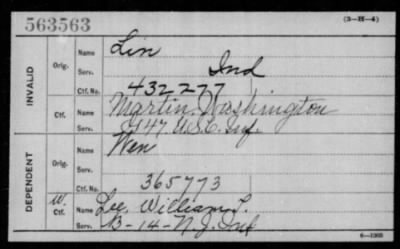 563563
(3-H-4)
INVALID
Orig.
Name
Serv.
Ind
Ctf. No.
432277
Ctf.
Name
Martin, Washington
Serv.
147 U.S.C. Inf.
DEPENDENT
Orig.
Name
Serv.
Ctf. No.
365773
W.
Ctf.
Name
Lee, William T.
Serv.
B-14-N.J. Inf